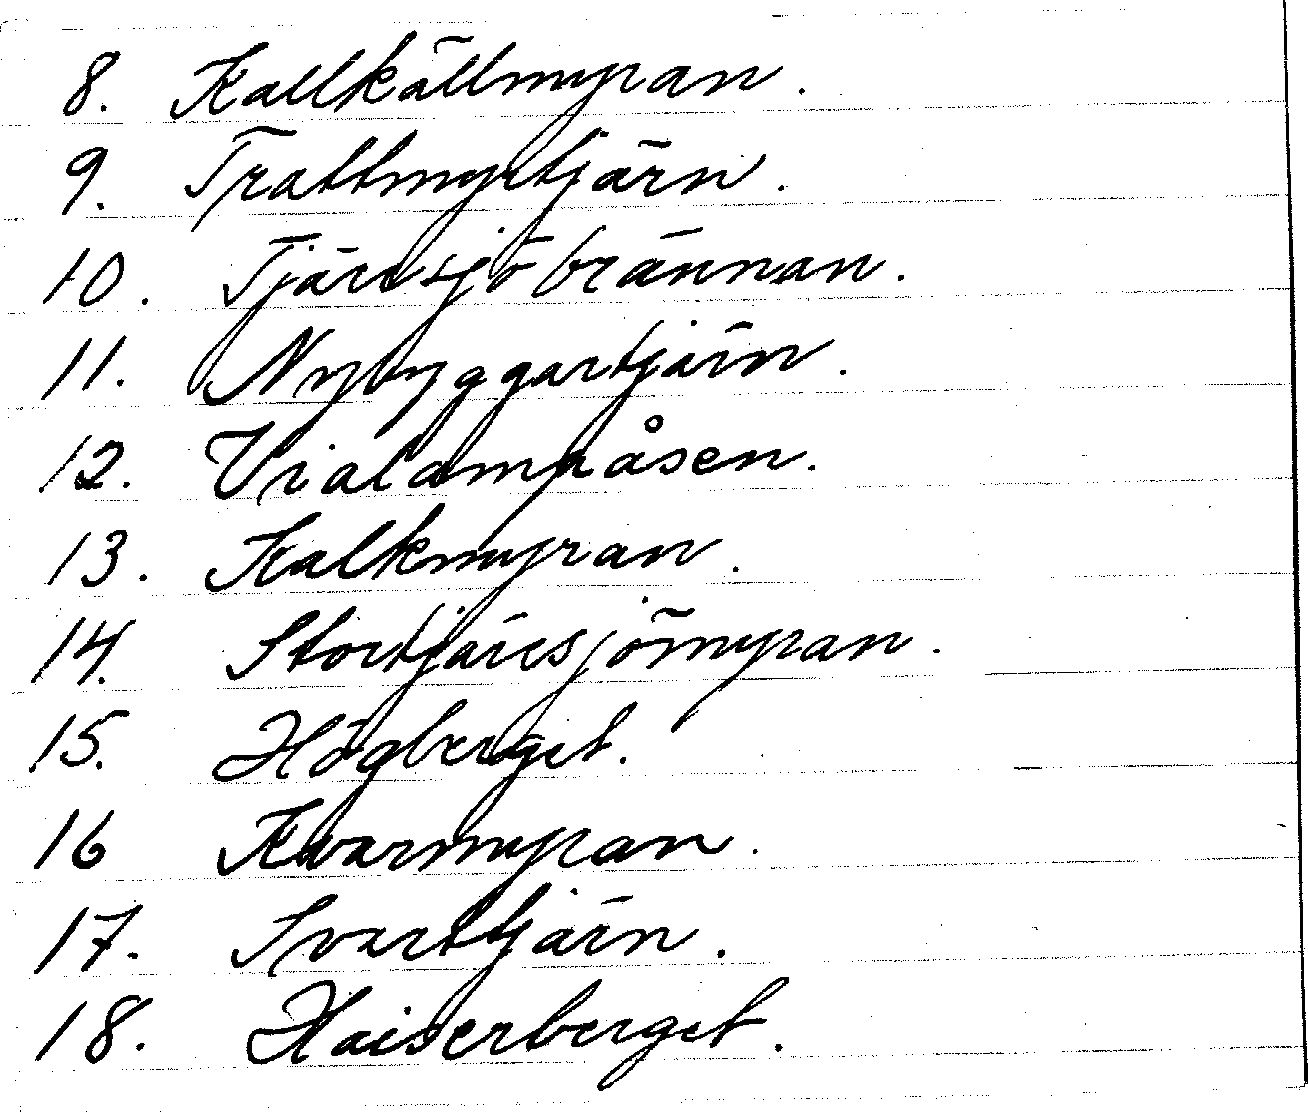 8. Kallkällmyran.
9. Trattmyrtjärn.
10. Tjärusjöbrännan.
11. Nybyggartjärn.
12. Vialampåsen.
13. Kalkmyran.
14. Stortjärusjömyran.
15. Högberget.
16 Kvarmyran.
17. Svarttjärn.
18. Haiserberget.